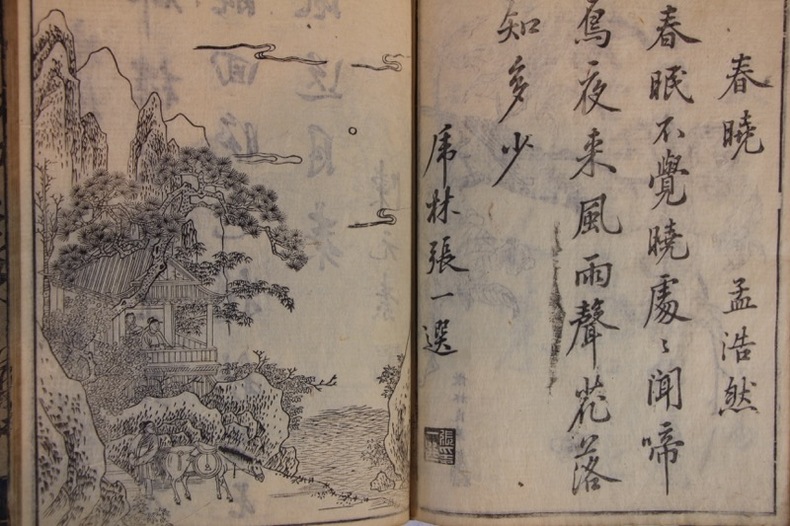 春曉 孟浩然
春眠不覺曉處〻聞啼
鳥夜来風雨聲花落
知多少
虎林張一選